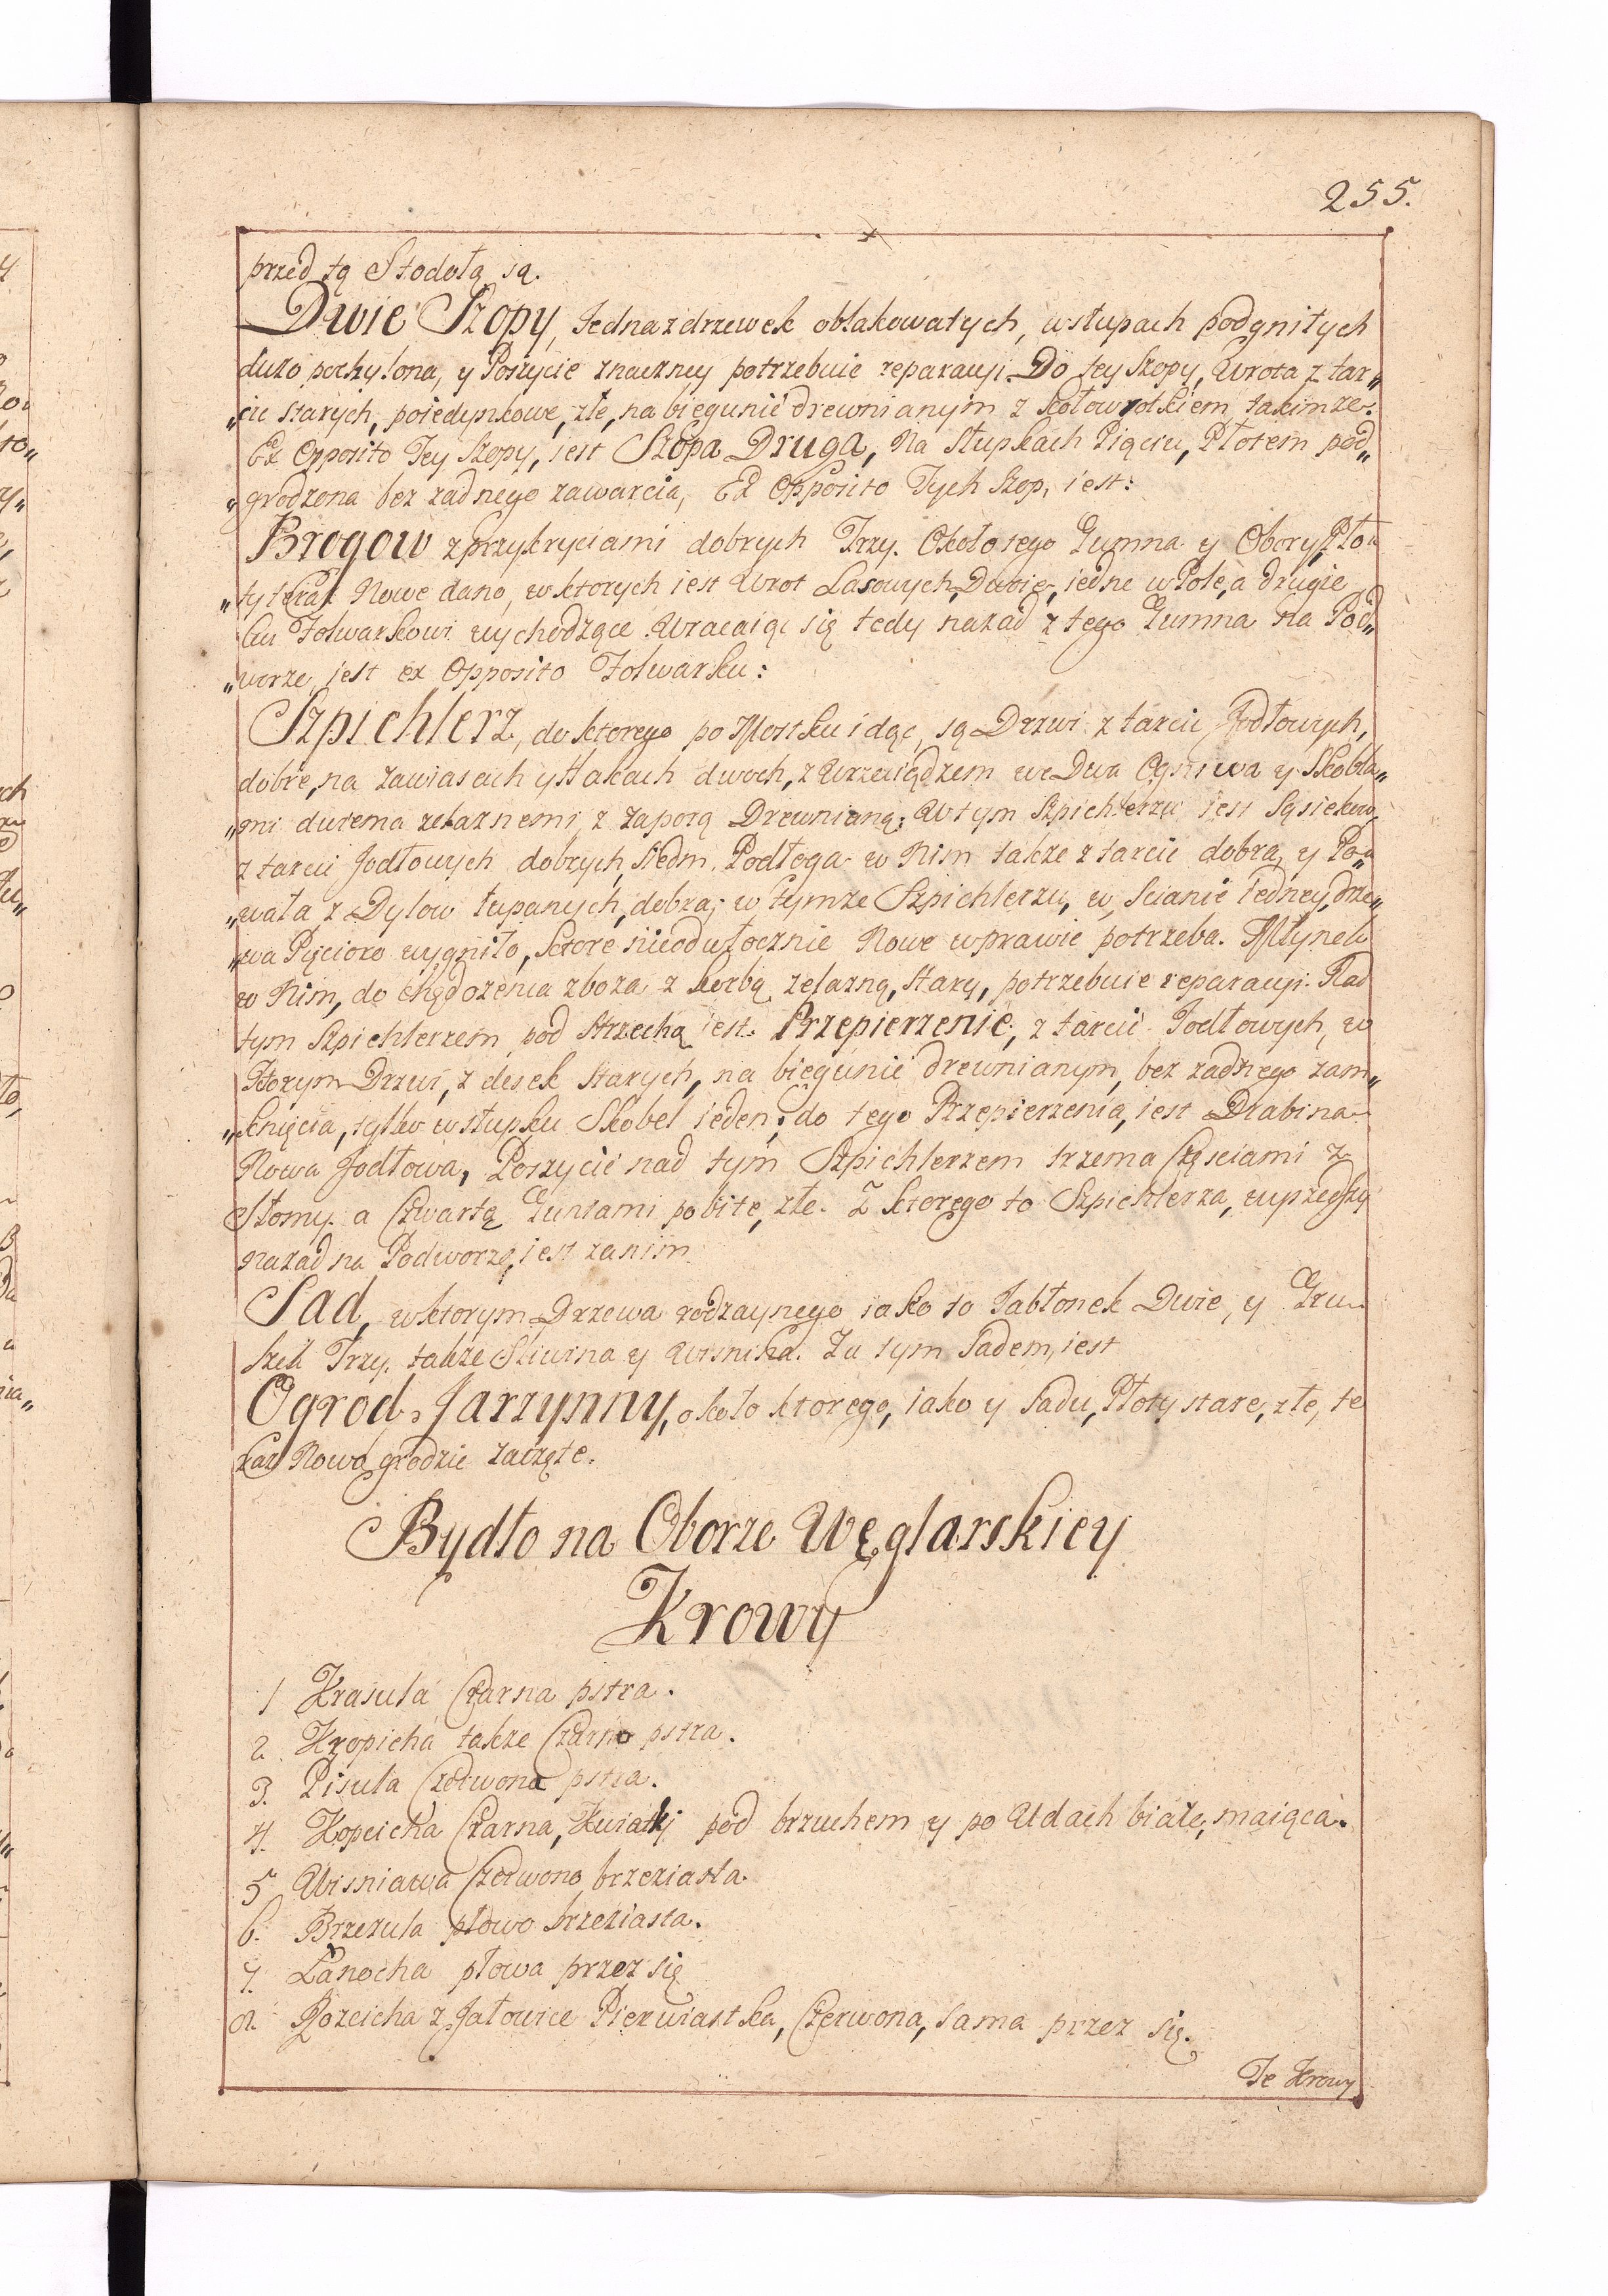 255.
przed tą Stodołą są.
Dwie Szopy, Iedna z drzewek obłakowatych, w słupach podgniłych
dużo pochylona, y Poszycie znaczney potrzebuie reparacyi. Do tey Szopy, Wrota z tar„
„cic starych, poiedynkowe, złe, na biegunie drewnianym z kołowrotkiem takimże.
Ex Opposito Tey Szopy, iest Szopa Druga, Na Słupkach Pięciu, Płotem pod„
„grodzona bez żadnego zawarcia, Ex Opposito Tych Szop, iest:
Brogow z przykryciami dobrych Trzy. Około tego Gumna y Obory Pło„
„ty teraz Nowe dano, w ktorych iest Wrot Lasowych Dwoie, iedne w Pole, a drugie
ku Folwarkowi wychodzące. Wracaiąc się tedy nazad z tego Gumna na Pod„
„worze, iest ex Opposito Folwarku:
Szpichlerz, do ktorego po Mostku idąc, są Drzwi z tarcic Jodłowych,
dobre, na zawiasach y Hakach dwoch, z Wrzeciądzem we Dwa Ogniwa y Skobla„
„mi dwiema zelaznemi, z zaporą Drewnianą; W tym Szpichlerzu iest Sąsiekow
z tarcic Jodłowych dobrych, Siedm. Podłoga w Nim także z tarcic dobra, y Po„
„wała z Dylow łupanych, dobra; w tymże Szpichlerzu, w Scianie iedney, drze„
„wa Pięcioro wygniło, ktore nieodwłocznie Nowe wprawić potrzeba. Młynek
w Nim, do chędożenia zboża z korbą żelazną, stary, potrzebuie reparacyi. Nad
tym Szpichlerzem pod strzechą iest Przepierzenie, z tarcic Jodłowych, w
Ktorym Drzwi, z desek starych, na biegunie drewnianym, bez żadnego zam„
„knięcia, tylko w słupku Skobel ieden; do tego Przepierzenia, iest Drabina
Nowa Jodłowa, Poszycie nad tym Szpichlerzem trzema Częsciami z
Słomy a Czwartą Guntami pobite, złe. Z ktorego to Szpichlerza, wyszedszy
nazad na Podworze, iest za nim
Sad, w ktorym Drzewa rodzaynego iako to Jabłonek Dwie, y Gru„
szek Trzy. także Sliwina y Wisnina. Za tym Sadem, iest
Ogrod Jarzynny, około ktorego, iako y Sadu, Płoty stare, złe, te
raz Nowo grodzić zaczęte.
Bydło na Oborze Węglarskiey
Krowy
1 Krasula Czarna pstra.
2. Kropicha także Czarno pstra.
3. Pisula Czerwona pstra.
4. Kopcicha Czarna, Kwiatki pod brzuchem y po Udach białe, maiąca.
5 Wisniawa Czerwono brzeziasta.
6. Brzezula płowo brzeziasta.
7. Łanocha płowa przez się
8. Bozeicha z Jałowice Pierwiastka, Czerwona, sama przez się.
Te Krowy